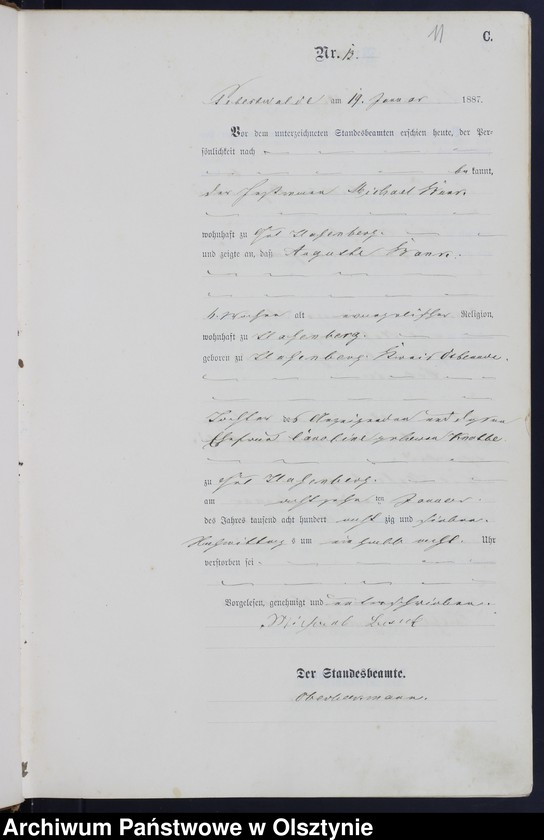 11 C.
Nr. 13.
am 19. Januar 1887.
Vor dem unterzeichneten Standesbeamten erschien heute, der Per-
sönlichkeit nach
bekannt,
der Michael
wohnhaft zu Gut
und zeigte an, daß Auguste
4 Wochen alt evangelischer Religion,
wohnhaft zu
geboren zu Kreis Osterode.
Tochter des Anzeigenden und dessen
Ehefrau Caroline geborenen
zu Gut
am achtzehn ten Januar
des Jahres tausend acht hundert acht zig und sieben
Nachmittags um ein halb acht Uhr
verstorben sei
Vorgelesen, genehmigt und unterschrieben.
Michael
Der Standesbeamte.
Archiwum Państwowe w Olsztynie